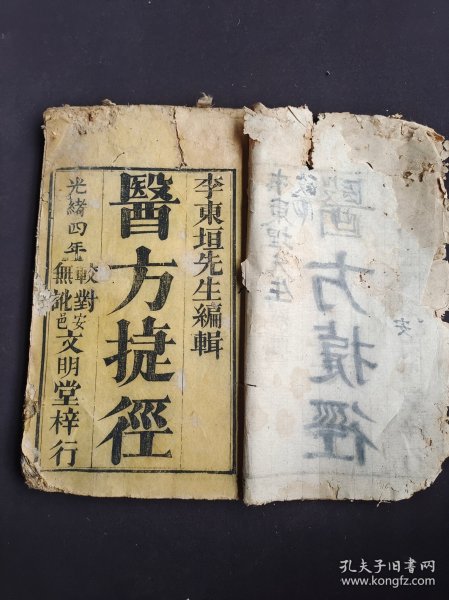 李東垣先生編輯
醫方捷徑
光緒四年較對無訛安邑文明堂梓行
醫方捷徑
孔夫子旧书网
www.kongfz.com